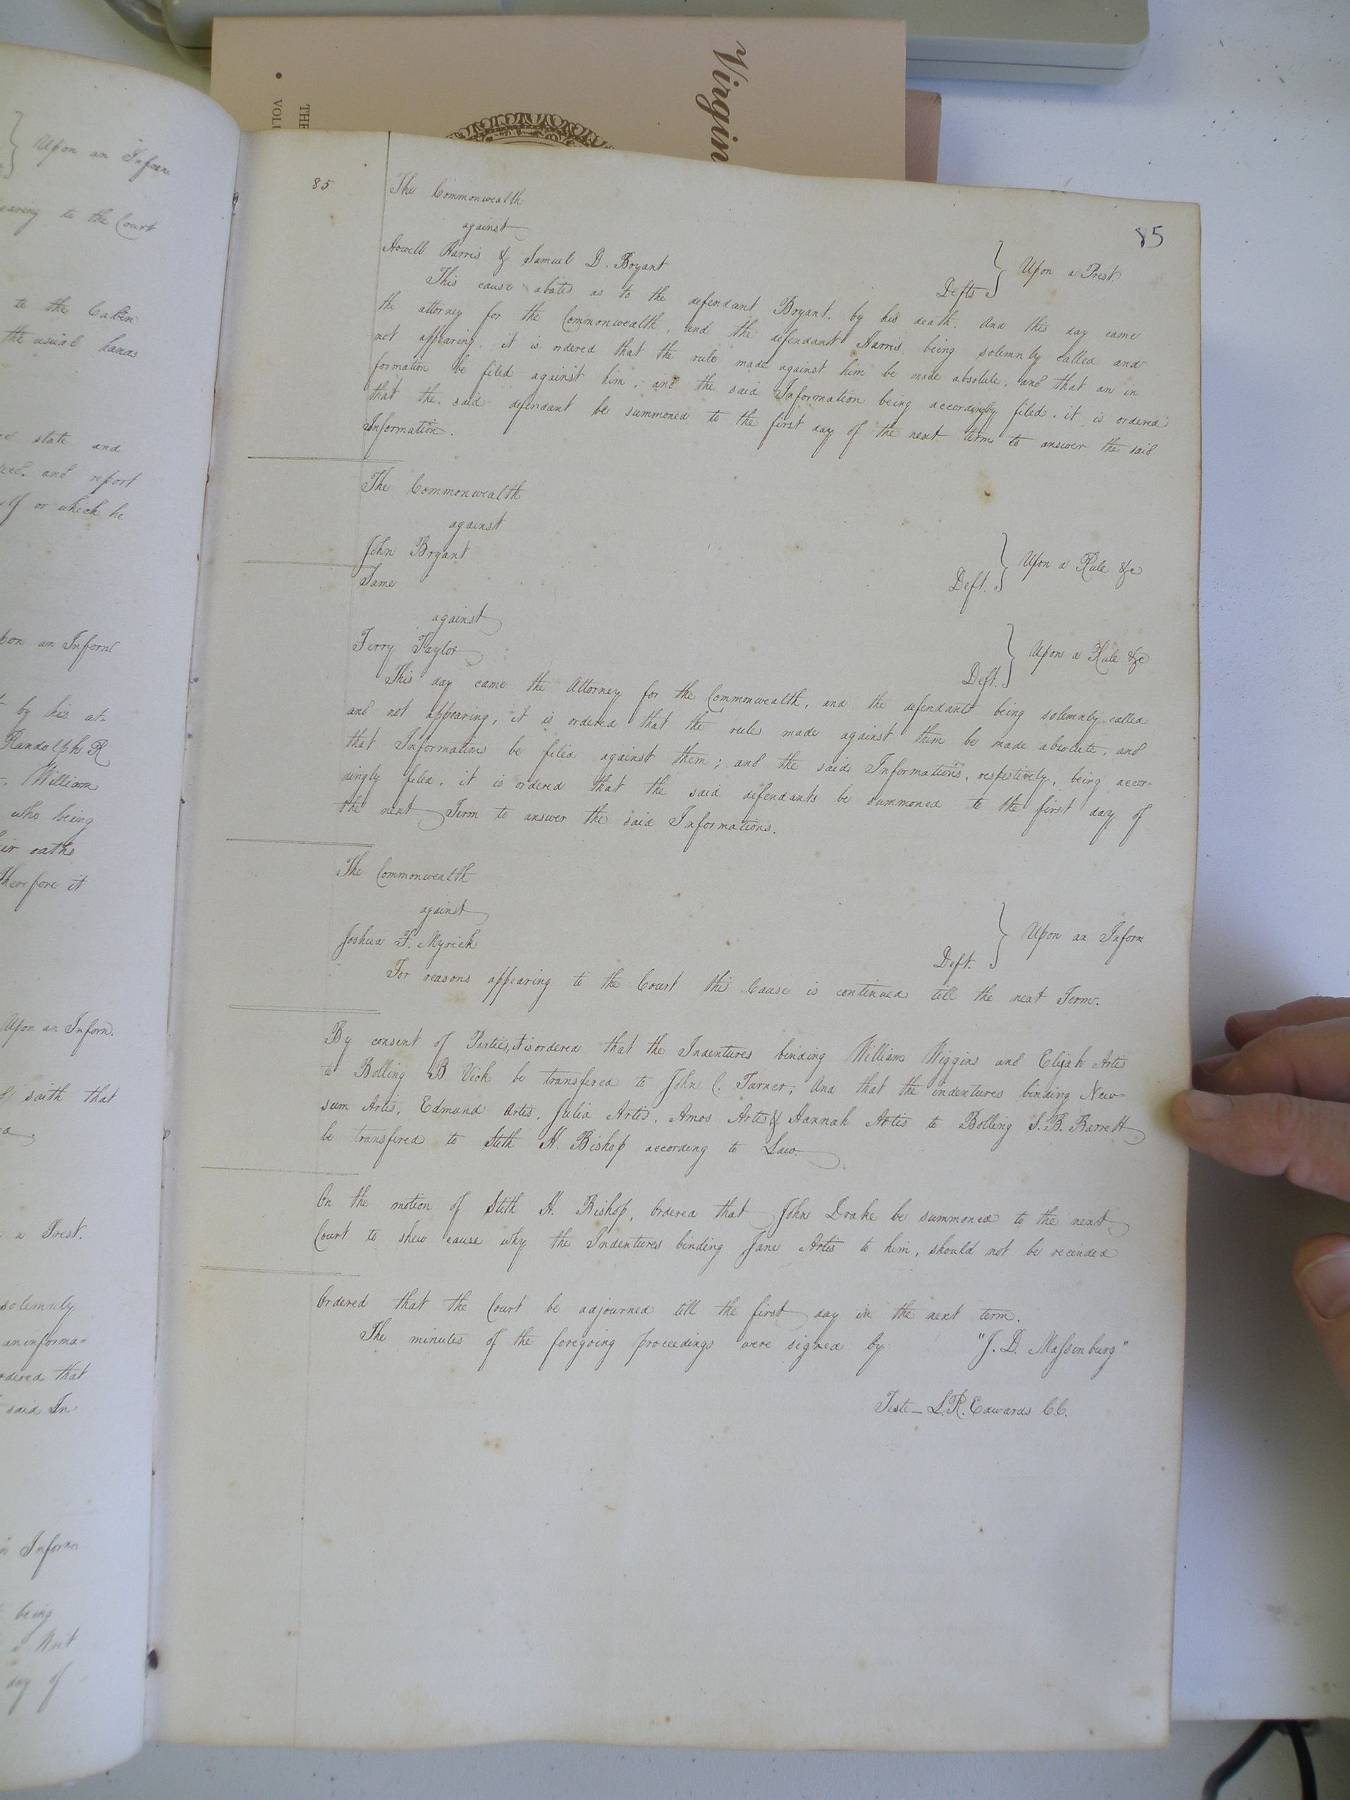 Virgin
THE
VOL
Upon an Inform
earing to the Court
to the
the usual
state and
and report
or which he
pon an Inform
by his at-
Randolph R
William
who being
eir oaths
therefore it
Upon an Inform.
saith that
a Prest.
solemnly
an informa=
rdered that
said In
Inform
being
day of
85
85
The Commonwealth
against
Howell Harris & Samuel D. Bryant Defts } Upon a Prest.
This cause abates as to the defendant Bryant, by his death. And this day came
the attorney for the Commonwealth, and the defendant Harris being solemnly called and
not appearing, it is ordered that the rule made against him be made absolute, and that an in
formation be filed against him; and the said Information being accordingly filed, it is ordered
that the said defendant be summoned to the first day of the next term to answer the said
Information.
The Commonwealth
against
John Bryant Deft. } Upon a Rule &c
Same
against
Terry Taylor Deft. } Upon a Rule &c
This day came the Attorney for the Commonwealth, and the defendants being solemnly called
and not appearing, it is ordered that the rules made against them be made absolute, and
that Informations be filed against them; and the said Informations, respectively, being accor-
dingly filed, it is ordered that the said defendants be summoned to the first day of
the next Term to answer the said Informations.
The Commonwealth
against
Joshua F. Myrick Deft. } Upon an Inform
For reasons appearing to the Court this Cause is continued till the next Term.
By consent of Parties, it is ordered that the Indentures binding William Wiggins and Elijah Artis
to Bolling B. Vick be transfered to John C. Turner; And that the indentures binding New-
sum Artis, Edmund Artis, Julia Artis, Amos Artis & Hannah Artis to Bolling S. B. Barrett
be transfered to Stith H. Bishop according to Law.
On the motion of Stith H. Bishop, Ordered that John Drake be summoned to the next
Court to shew cause why the Indentures binding Jane Artis to him, should not be recinded
Ordered that the Court be adjourned till the first day in the next term.
The minutes of the foregoing proceedings were signed by "J. D. Massenburg"
Teste_ L. R. Edwards C.C.